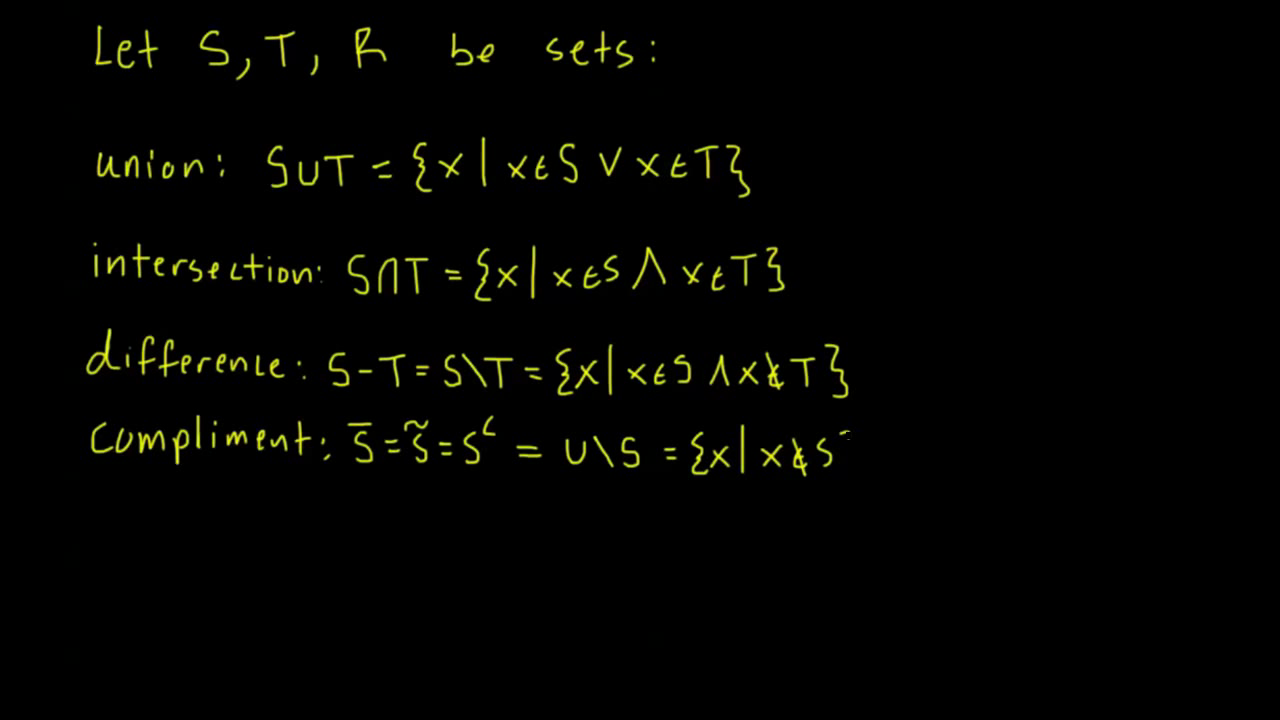 Let S, T, R be sets:
union: S∪T = {x | x∈S ∨ x∈T}
intersection: S∩T = {x | x∈S ∧ x∈T}
difference: S-T = S\T = {x | x∈S ∧ x∉T}
Compliment: S̅ = S̃ = Sᶜ = U\S = {x | x∉S